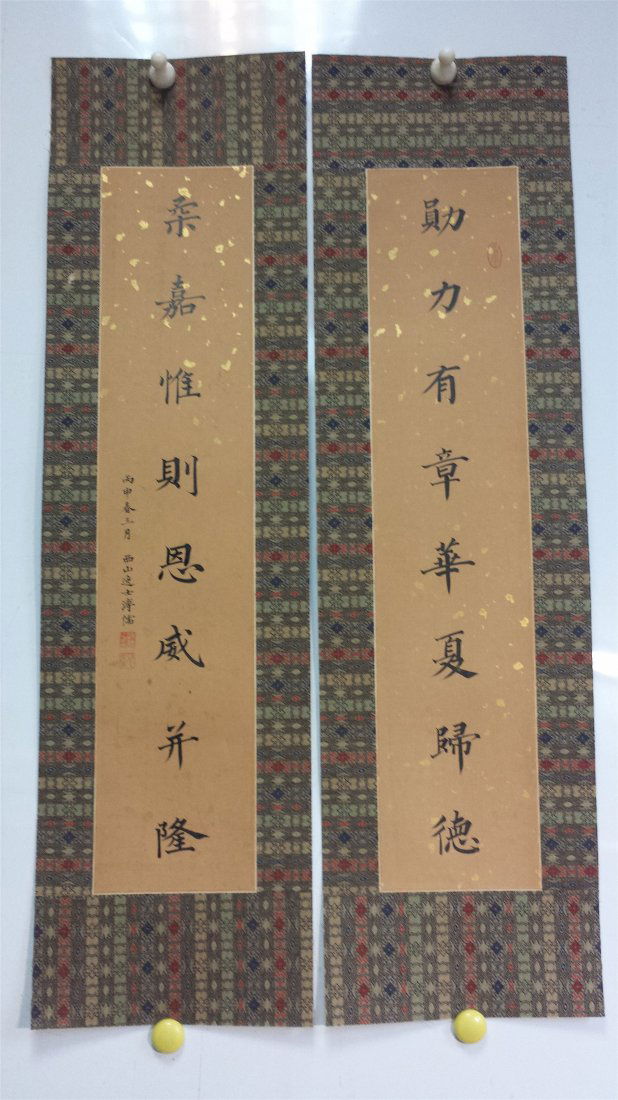 勛力有章華夏歸德
柔嘉惟則恩威并隆
丙申春三月 西山逸士溥儒